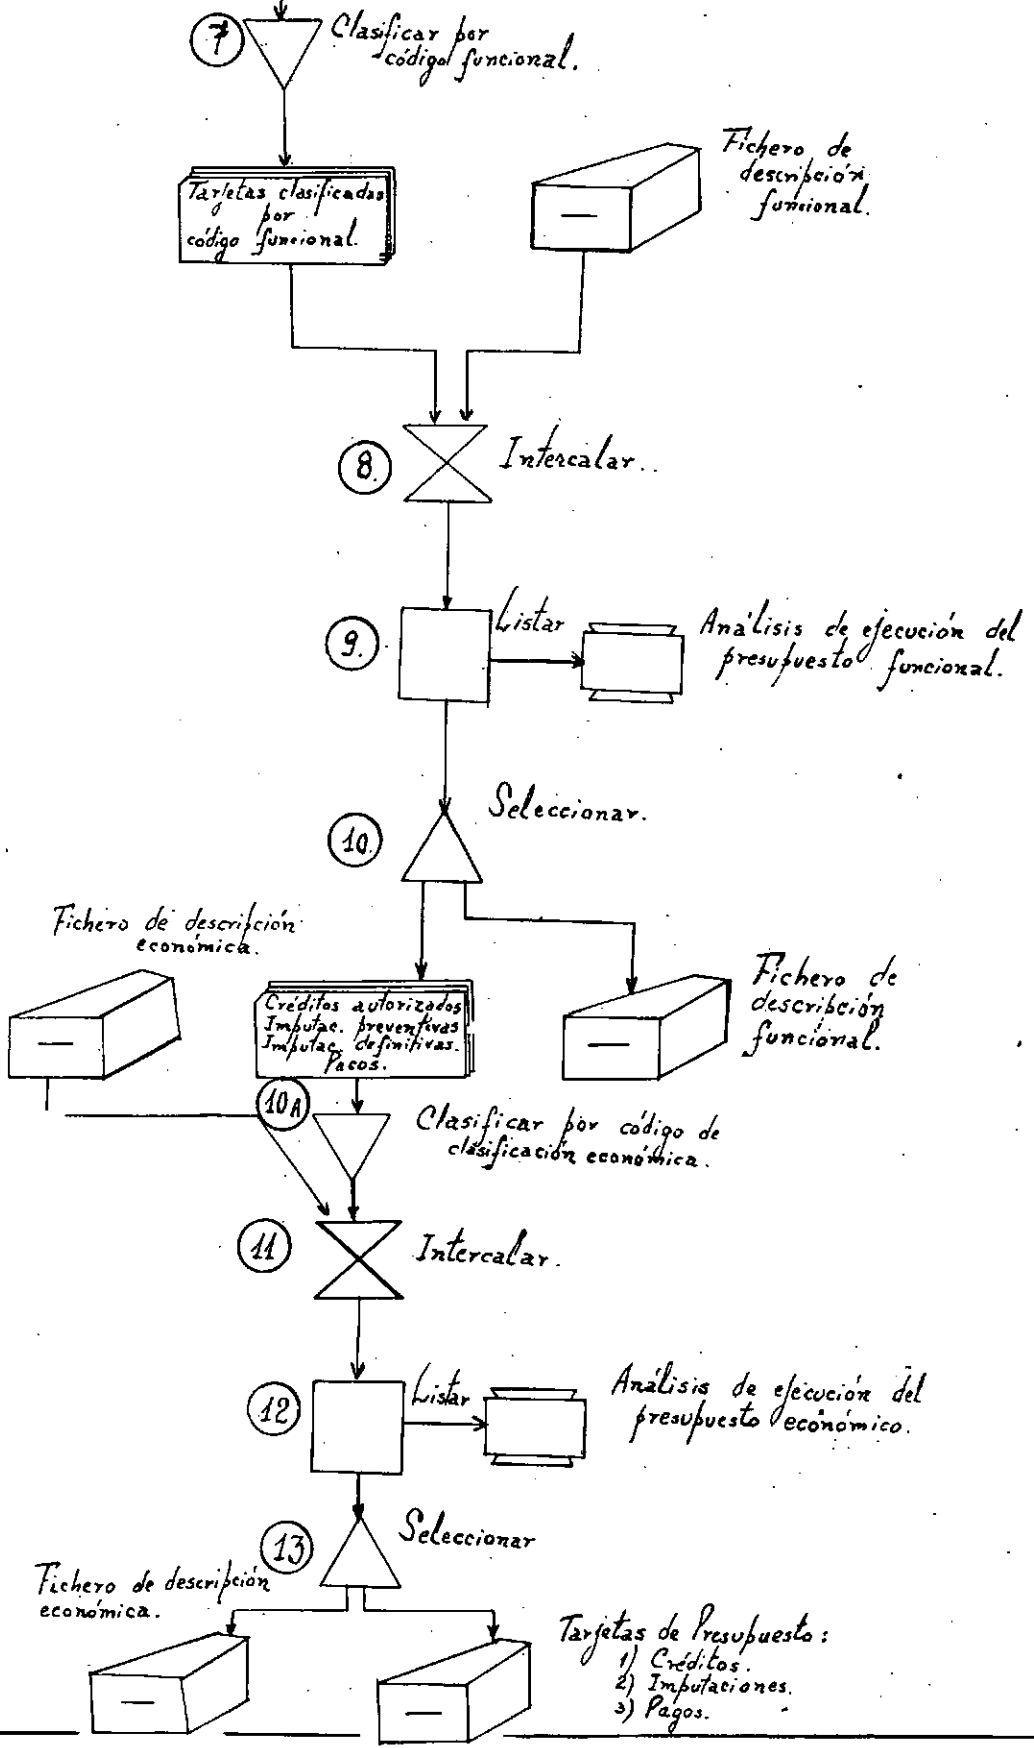 7
Clasificar por
código funcional.
Tarjetas clasificadas
por
código funcional.
Fichero de
descripción
funcional.
8.
Intercalar..
9.
Listar
Análisis de ejecución del
presupuesto funcional.
10.
Seleccionar.
Fichero de descripción
económica.
Créditos autorizados
Imputac. preventivas
Imputac. definitivas.
Pagos.
Fichero de
descripción
funcional.
10A
Clasificar por código de
clasificación económica.
11
Intercalar.
12
Listar
Análisis de ejecución del
presupuesto económico.
13
Seleccionar
Fichero de descripción
económica.
Tarjetas de Presupuesto:
1) Créditos.
2) Imputaciones.
3) Pagos.